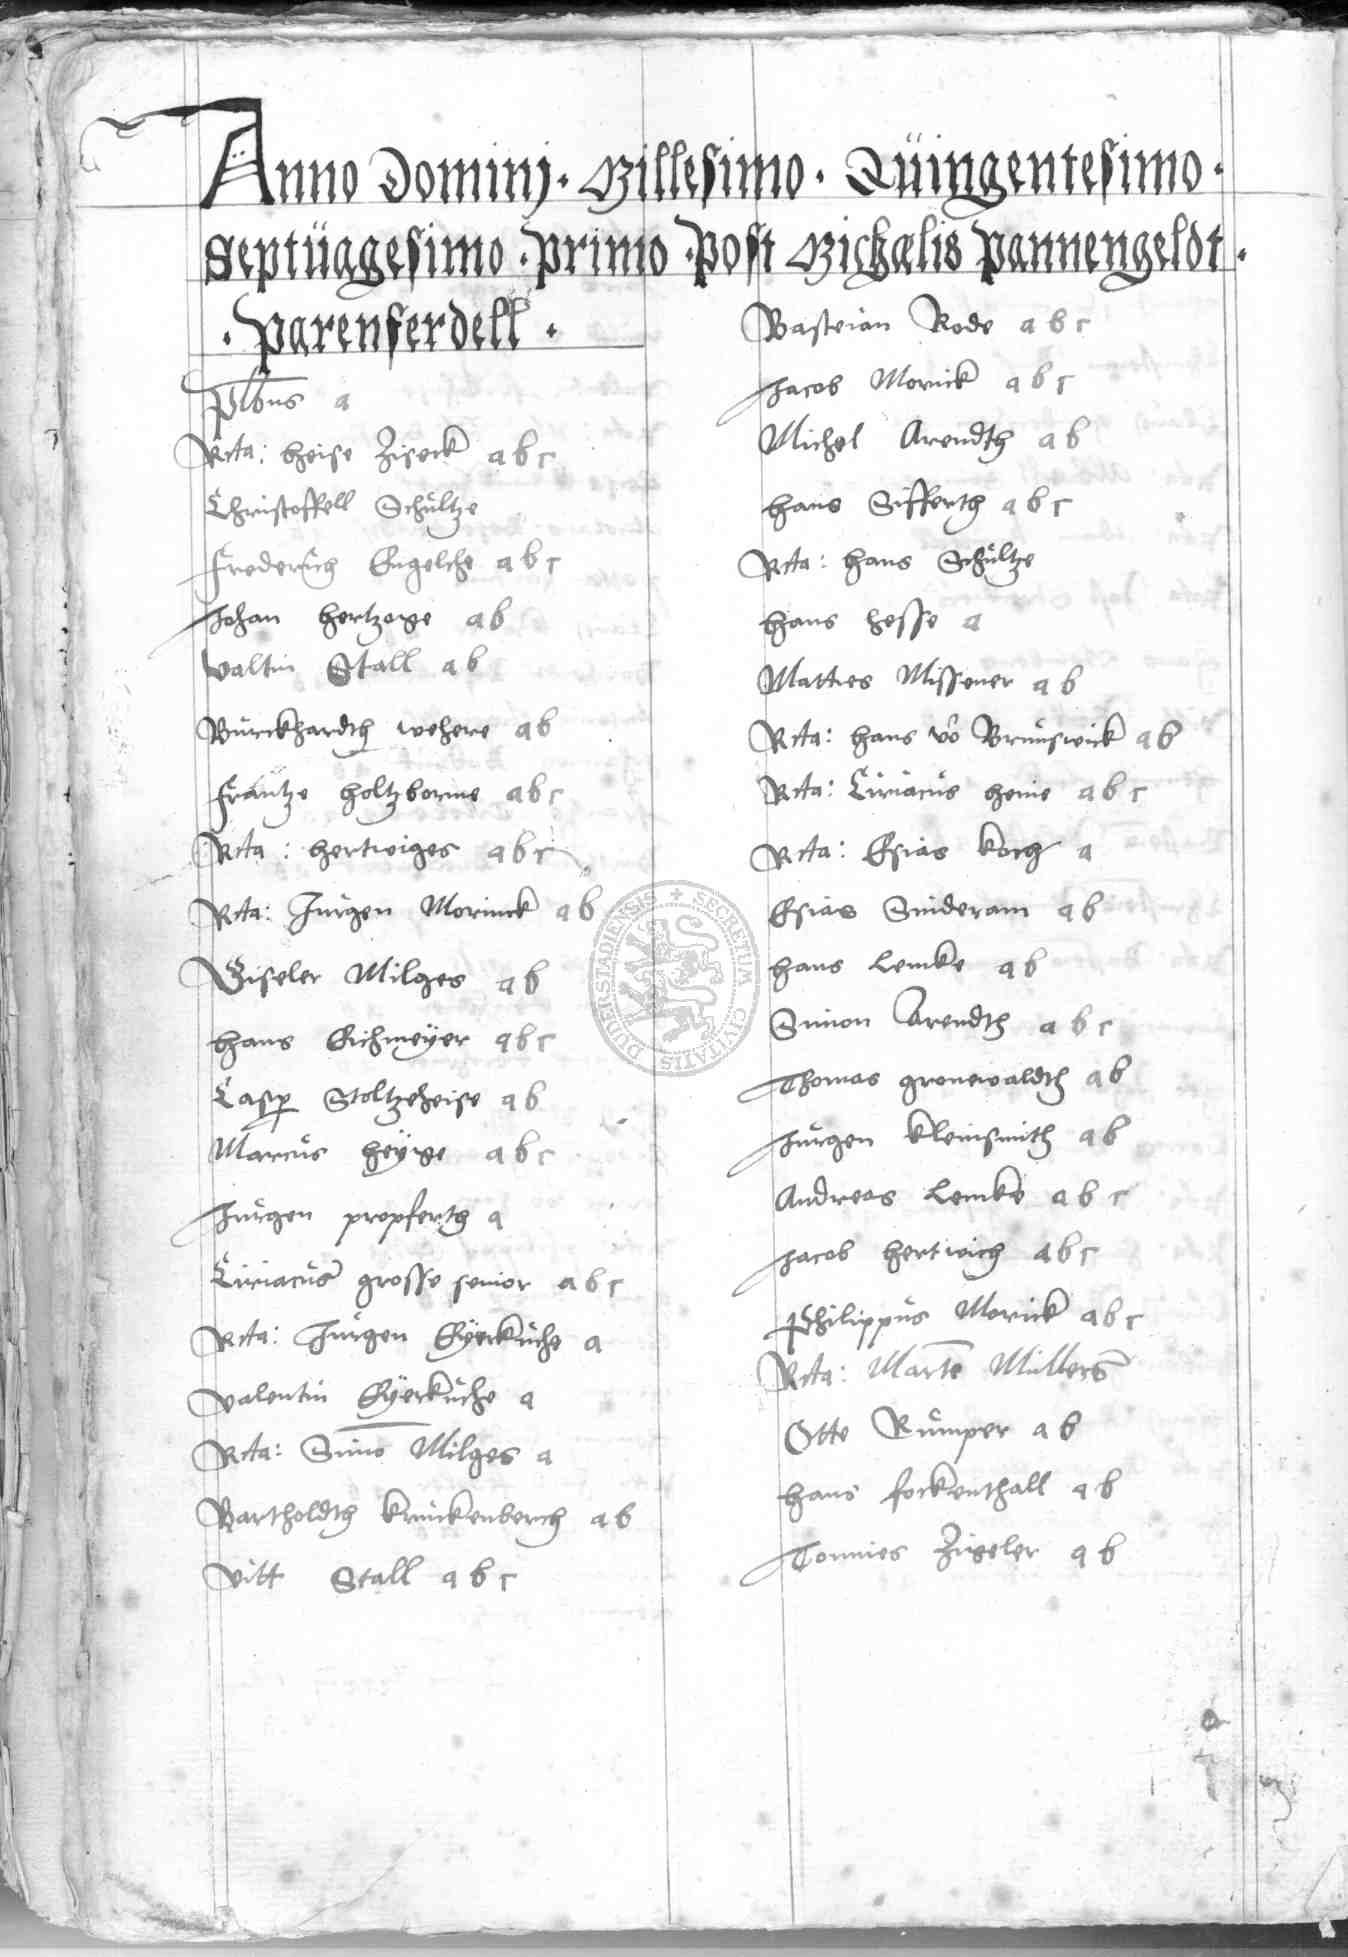 Anno Dominj · Millesimo · Qüingentesimo ·
Septüagesimo · Primo · Post Michælis Pannengeldt ·
· Parenferdell ·
Plbns a
Rcta: Heise Ziseck a b c
Christoffell Schültze
Frederich Engelche a b c
Johan Hertzoge a b
Valtin Stall a b
Bürckhardth wehere a b
Frantze Holtzborne a b c
Rcta: Hertwiges a b c
Rcta: Jürgen Morinck a b
Giseler Milges a b
Hans Eichmeÿer a b c
Casp Stoltzeheise a b
Marcüs Heÿge a b c
Jürgen propferth a
Ciriacüs grosse senior a b c
Rcta: Jürgen Eÿerküche a
Valentin Eÿerküche a
Rcta: Simo Milges a
Bartholdth Krückenberch a b
Vitt Stall a b c
Basteian Rode a b c
Jacob Mornick a b c
Michel Arendth a b
Hans Sifferth a b c
Rcta: Hans Schültze
Hans Hesse a
Matties Missener a b
Rcta: Hans vo Brünswick a b
Rcta: Ciriacüs Heine a b c
Rcta: Esias Koch a
Esias Sinderam a b
Hans Lemke a b
Simon Arendth a b c
Thomas gronewaldth a b
Jürgen Kleinsmith a b
Andreas Lemke a b c
Jacob Hertwich a b c
Philippüs Morick a b c
Rcta: Marte Müllers
Otte Rümper a b
Hans fockenthall a b
Tonnies Zigeler a b
SECRETUM CIVITATIS DUDERSTADIENSIS